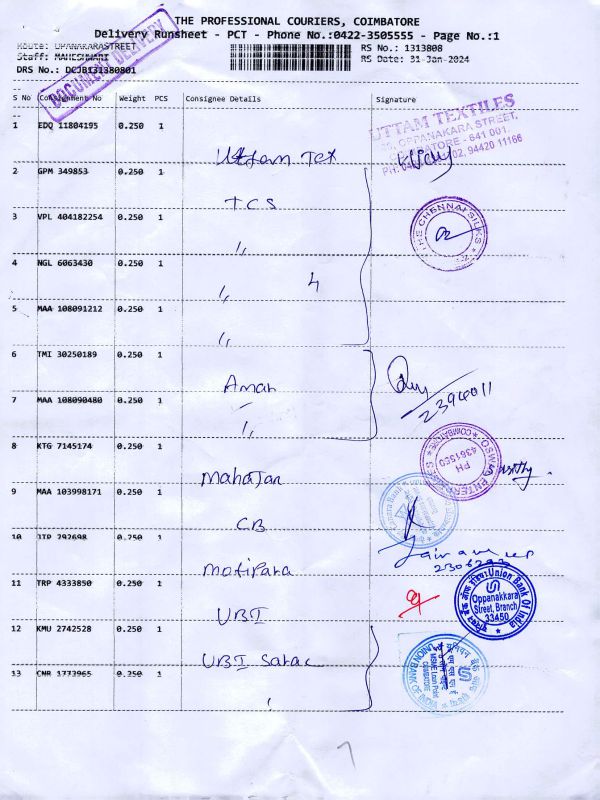 THE PROFESSIONAL COURIERS, COIMBATORE
Delivery Runsheet - PCT - Phone No.:0422-3505555 - Page No.:1
Route: OPPANAKARASTREET
RS No.: 1313808
Staff: MAHESHWARI
RS Date: 31-Jan-2024
DRS No.: DCJB131380801
DOCUMENT DELIVERY
S No Consignment No Weight PCS Consignee Details Signature
1 EDQ 11804195 0.250 1
Uttam Tex
UTTAM TEXTILES
OPPANAKARA STREET,
COIMBATORE - 641 001.
94420 11166
2 GPM 349853 0.250 1
TCS
3 VPL 404182254 0.250 1
"
THE CHENNAI SILKS
4 NGL 6063430 0.250 1
" 4
5 MAA 108091212 0.250 1
"
6 TMI 30250189 0.250 1
Aman
2394011
7 MAA 108090480 0.250 1
"
8 KTG 7145174 0.250 1
Mahajan
COIMBATORE
PH
4361SEO
ENTERPRISES
9 MAA 103998171 0.250 1
CB
Canara Bank
10 0.250 1
Motipara
11 TRP 4333850 0.250 1
UBI
Union Bank Of India
Oppanakkara
Street, Branch
33450
12 KMU 2742528 0.250 1
UBI Saral
13 CNR 1773965 0.250 1
UNION BANK OF INDIA
MSME Loan Point
COIMBATORE
7